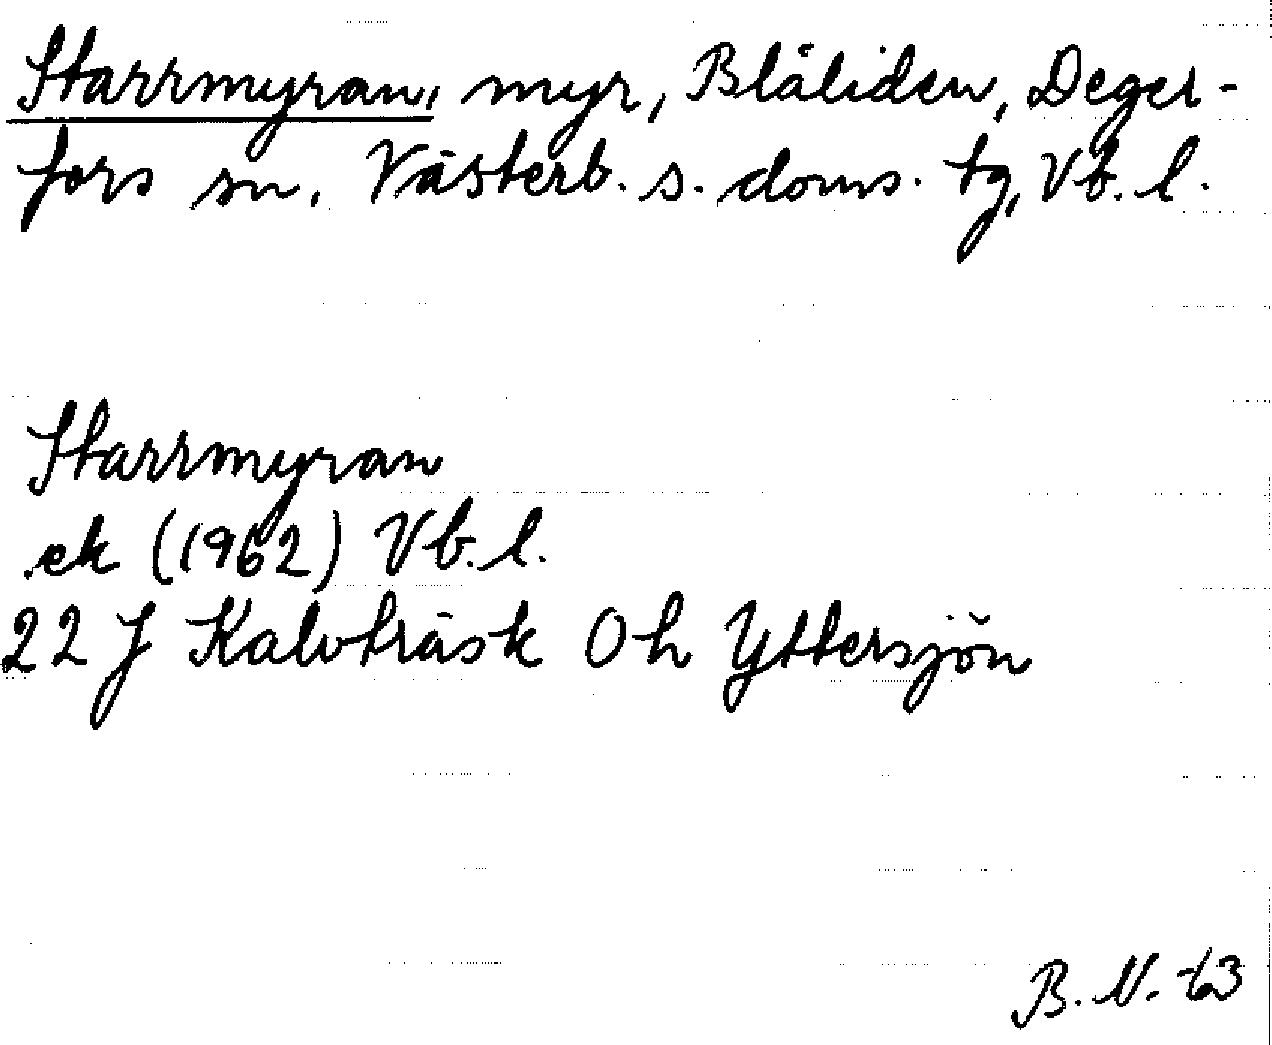 Starrmyran, myr, Blåliden, Deger-
fors sn, Västerb. s. doms. tg, Vb. l.
Starrmyran
ek (1962) Vb. l.
22 J Kalvträsk 0h Yttersjön
B. N. -63